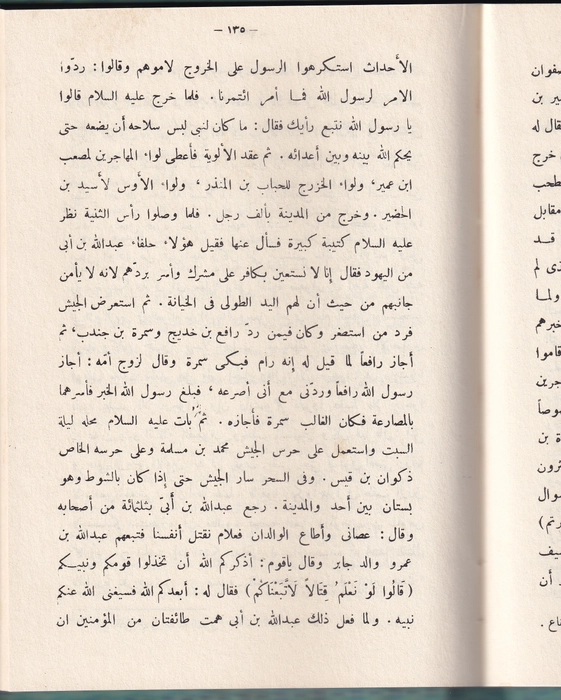 – ١٣٥ –
الأحداث استكرهوا الرسول على الخروج لاموهم وقالوا : ردّوا
الامر لرسول الله فما أمر ائتمرنا . فلما خرج عليه السلام قالوا
يا رسول الله نتبع رأيك فقال : ما كان لنبى لبس سلاحه أن يضعه حتى
يحكم الله بينه وبين أعدائه . ثم عقد الألوية فأعطى لواء المهاجرين لمصعب
ابن عمير، ولواء الخزرج للحباب بن المنذر ، ولواء الأوس لأسيد بن
الحضير . وخرج من المدينة بألف رجل . فلما وصلوا رأس الثنية نظر
عليه السلام كتيبة كبيرة فسأل عنها فقيل هؤلاء حلفاء عبدالله بن أبى
من اليهود فقال إنا لا نستعين بكافر على مشرك وأمر بردّهم لانه لا يأمن
جانبهم من حيث أن لهم اليد الطولى فى الخيانة . ثم استعرض الجيش
فرد من استصغر وكان فيمن ردّ رافع بن خديج وسمرة بن جندب، ثم
أجاز رافعاً لما قيل له إنه رام فبكى سمرة وقال لزوج أمّه : أجاز
رسول الله رافعاً وردّنى مع أنى أصرعه ، فبلغ رسول الله الخبر فأمرهما
بالمصارعة فكان الغالب سمرة فأجازه . ثم بات عليه السلام محله ليلة
السبت واستعمل على حرس الجيش محمد بن مسلمة وعلى حرسه الخاص
ذكوان بن قيس . وفى السحر سار الجيش حتى إذا كان بالشوط وهو
بستان بين أحد والمدينة . رجع عبدالله بن أبىّ بثلثمائة من أصحابه
وقال : عصانى وأطاع الوالدان فعلام نقتل أنفسنا فتبعهم عبدالله بن
عمرو والد جابر وقال ياقوم : أذكركم الله أن تخذلوا قومكم ونبيكم
( قَالُوا لَوْ نَعْلَمُ قِتَالاً لَاتَّبَعْنَاكُمْ ) فقال له : أبعدكم الله فسيغنى الله عنكم
نبيه . ولما فعل ذلك عبدالله بن أبى همت طائفتان من المؤمنين ان
صفوان
ير بن
قال له
خرج
مقابل
قد
ذى لم
ولما
خبرهم
قاموا
جرين
موصاً
ة بن
ترون
وال
رتم)
يف
أن
اع .